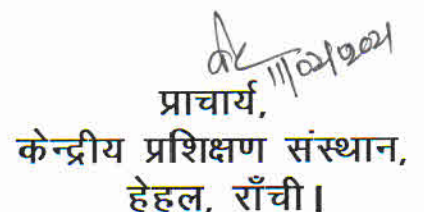 11/02/2021
प्राचार्य,
केन्द्रीय प्रशिक्षण संस्थान,
हेहल, राँची।